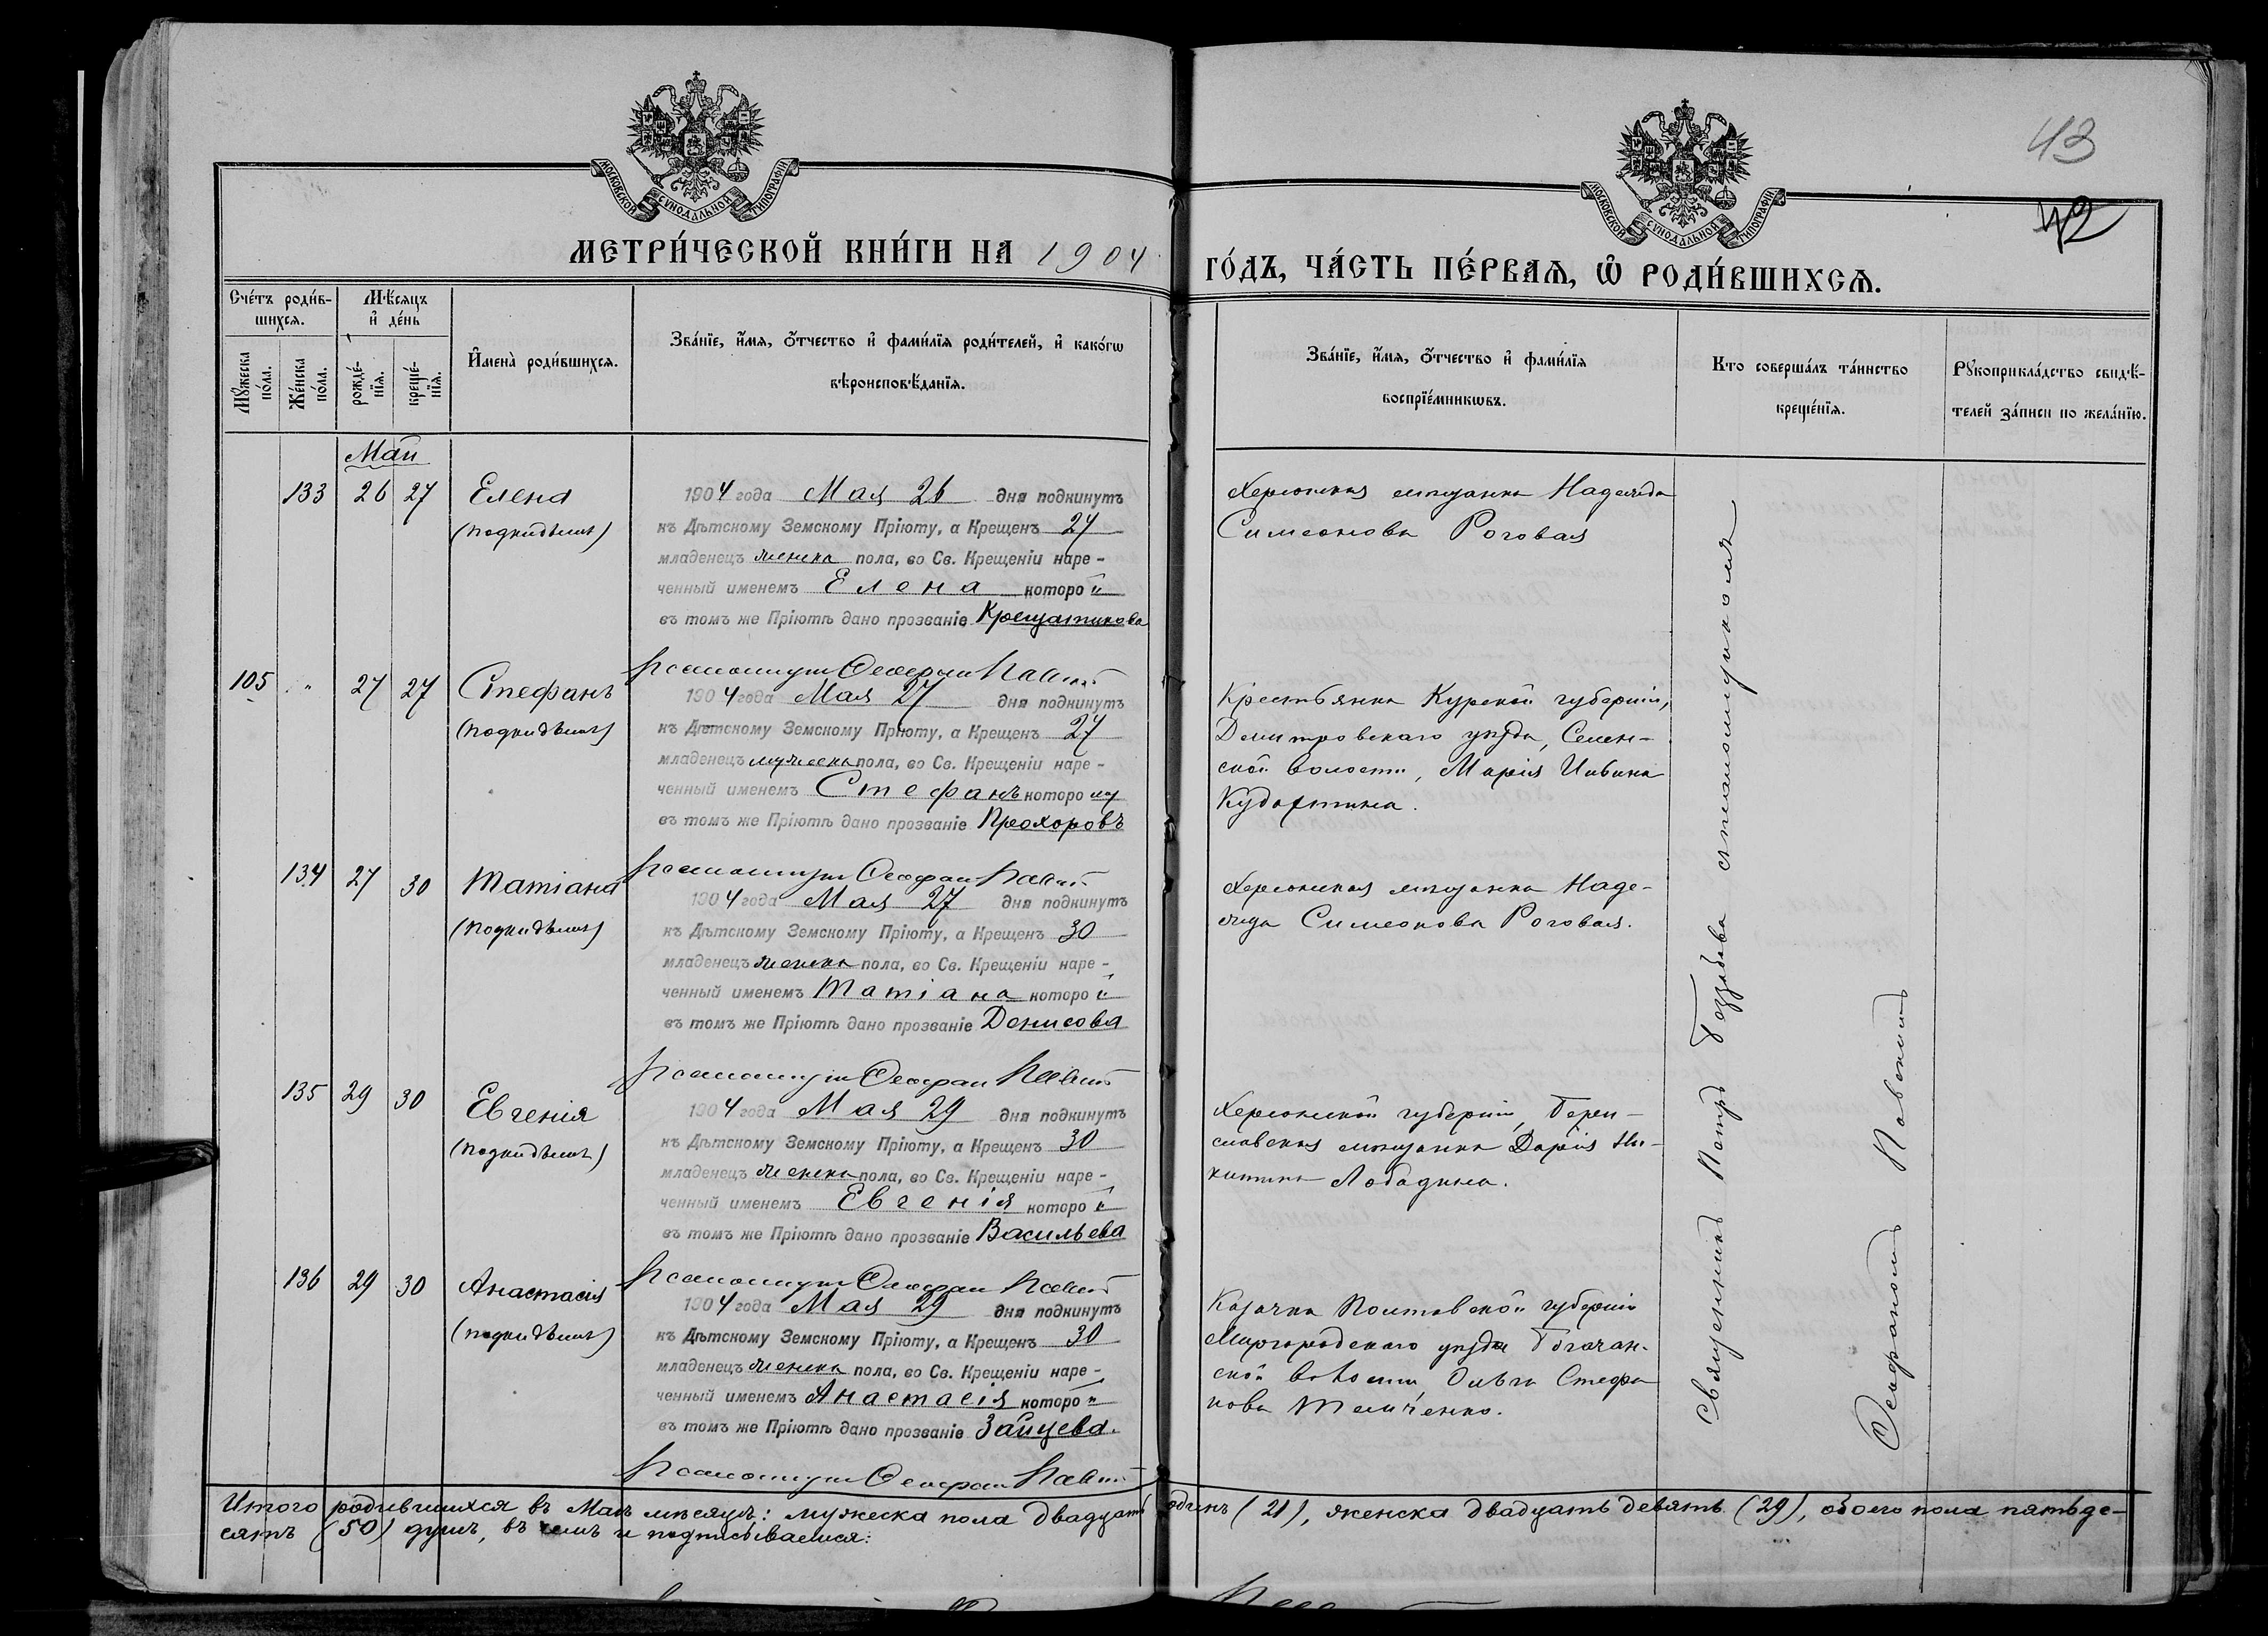 43
42
МОСКОВСКОЙ СУНОДАЛЬНОЙ ТИПОГРАФІИ
МОСКОВСКОЙ СУНОДАЛЬНОЙ ТИПОГРАФІИ
МЕТРИ́ЧЕСКОЙ КНИ́ГИ НА 1904
ГО́ДЪ, ЧА́СТЬ ПЕ́РВАѦ, Ѡ РОДИ́ВШИХСѦ.
Сче́тъ роди́в-
шихсѧ.
Мꙋжеска
по́ла.
Же́нска
по́ла.
Мѣ́сѧцъ
и҆ де́нь
рожде́-
нїѧ.
креще́-
нїѧ.
И҆мена̀ роди́вшихсѧ.
Зва́нїе, и҆́мѧ, ѻ҆́тчество и҆ фами́лїѧ роди́телей, и҆ како́гѡ
вѣроисповѣ́данїѧ.
Зва́нїе, и҆́мѧ, ѻ҆́тчество и҆ фами́лїѧ
воспрїе́мникѡвъ.
Кто соверша́лъ та́инство
креще́нїѧ.
Рꙋкоприкла́дство свидѣ́-
телей за́писи по жела́нїю.
Май
133 26 27 Елена
(подкидышъ)
1904 года Мая 26 дня подкинутъ
къ Дѣтскому Земскому Пріюту, а Крещенъ 27
младенецъ женска пола, во Св. Крещеніи наре-
ченный именемъ Елена которой
въ томъ же Пріютѣ дано прозваніе Крещатикова
Херсонская мѣщанка Надежда
Симеонова Роговая
105 " 27 27 Стефанъ
(подкидышъ)
1904 года Мая 27 дня подкинутъ
къ Дѣтскому Земскому Пріюту, а Крещенъ 27
младенецъ мужеска пола, во Св. Крещеніи наре-
ченный именемъ Стефанъ которому
въ томъ же Пріютѣ дано прозваніе Прохоровъ
Крестьянка Курской губерніи,
Дмитровскаго уѣзда, Семен-
ской волости, Марія Ивана
134 27 30 Татіана
(подкидышъ)
1904 года Мая 27 дня подкинутъ
къ Дѣтскому Земскому Пріюту, а Крещенъ 30
младенецъ женска пола, во Св. Крещеніи наре-
ченный именемъ Татіана которой
въ томъ же Пріютѣ дано прозваніе Денисова
Херсонская мѣщанка Наде-
жда Симеонова Роговая.
135 29 30 Евгенія
(подкидышъ)
1904 года Мая 29 дня подкинутъ
къ Дѣтскому Земскому Пріюту, а Крещенъ 30
младенецъ женска пола, во Св. Крещеніи наре-
ченный именемъ Евгенія которой
въ томъ же Пріютѣ дано прозваніе Васильева
Херсонской губерніи, Бери-
славская мѣщанка Дарія Ни-
китина Лободина.
136 29 30 Анастасія
(подкидышъ)
1904 года Мая 29 дня подкинутъ
къ Дѣтскому Земскому Пріюту, а Крещенъ 30
младенецъ женска пола, во Св. Крещеніи наре-
ченный именемъ Анастасія которой
въ томъ же Пріютѣ дано прозваніе Зайцева.
Казачка Полтавской губерніи
Миргородскаго уѣзда Богачан-
ской волости Ольга Стефа
нова Темченко.
Священникъ Петръ съ псаломщикомъ
Феофаномъ Павскимъ
Итого родившихся въ Маѣ мѣсяцѣ: мужеска пола двадцать одинъ (21), женска двадцать девять (29), обоего пола пятьде-
сятъ (50) душъ, въ чемъ и подписываемся: